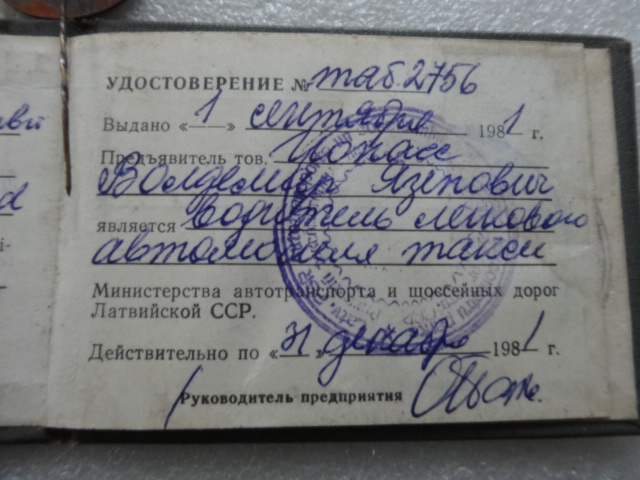 УДОСТОВЕРЕНИЕ № таб. 2756
Выдано «1» сентября 1981 г.
Предъявитель тов.
Волдемар Язепович
является водитель легкового
автомобиля такси
Министерства автотранспорта и шоссейных дорог
Латвийской ССР.
Действительно по «31» декабря 1981 г.
Руководитель предприятия